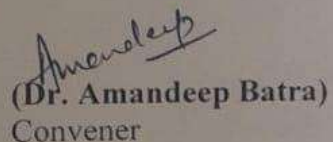 Amandeep
(Dr. Amandeep Batra)
Convener